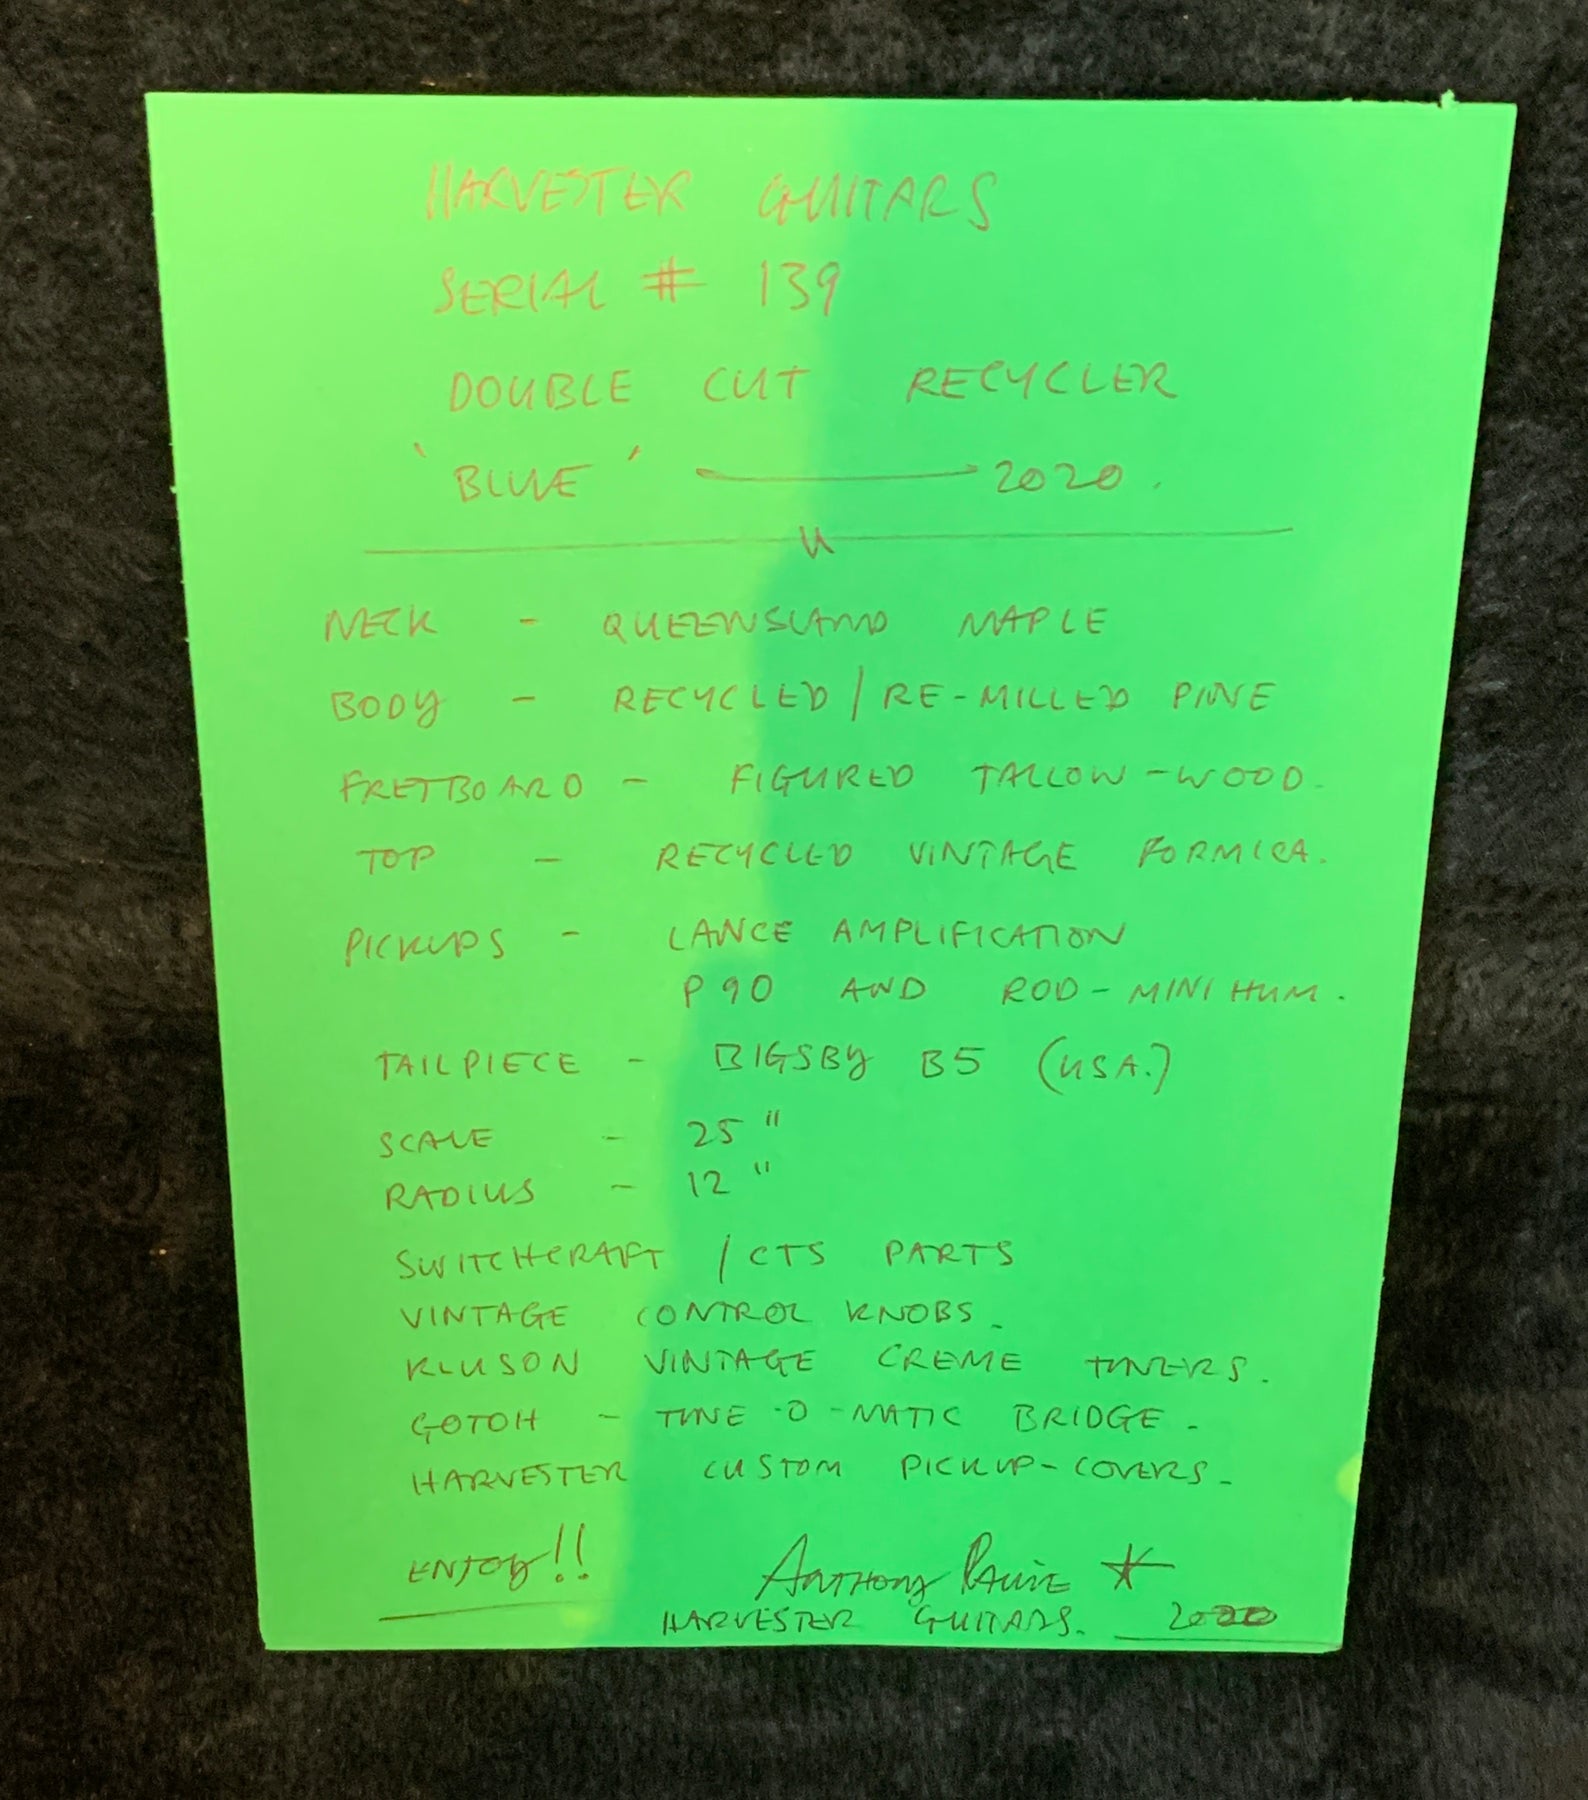 HARVESTER GUITARS
SERIAL # 139
DOUBLE CUT RECYCLER
'BLUE' — 2020.
NECK - QUEENSLAND MAPLE
BODY - RECYCLED / RE-MILLED PINE
FRETBOARD - FIGURED TALLOW-WOOD.
TOP - RECYCLED VINTAGE FORMICA.
PICKUPS - LANCE AMPLIFICATION
P90 AND ROD-MINI HUM.
TAILPIECE - BIGSBY B5 (USA.)
SCALE - 25"
RADIUS - 12"
SWITCHCRAFT / CTS PARTS
VINTAGE CONTROL KNOBS.
KLUSON VINTAGE CREME TUNERS.
GOTOH - TUNE-O-MATIC BRIDGE.
HARVESTER CUSTOM PICKUP-COVERS.
ENJOY!!
ANTHONY
HARVESTER GUITARS. 2020